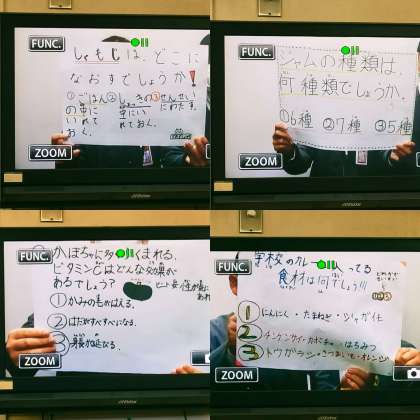 FUNC.
しゃもじは、どこに
なおすでしょうか!
①ごはん②しょっきの③せんせい
の中に
いれて
おく。
中にい
れておく。
にわたす。
ZOOM
FUNC.
ジャムの種類は、
何種類でしょうか。
①6種 ②7種 ③5種
ZOOM
FUNC.
かぼちゃに多くふくまれる、
ビタミンEはどんな効果が
あるでしょう?
ヒント
①かみの毛がはえる。
②はだがすべすべになる。
③身長が延びる。
ZOOM
FUNC.
学校のカレーに入ってる
食材は何でしょう!!!
①にんにく・たまねぎ・ジャガイモ
②チンゲンサイ・カボチャ・はちみつ
③トウガラシ・さつまいも・オレンジ
ZOOM